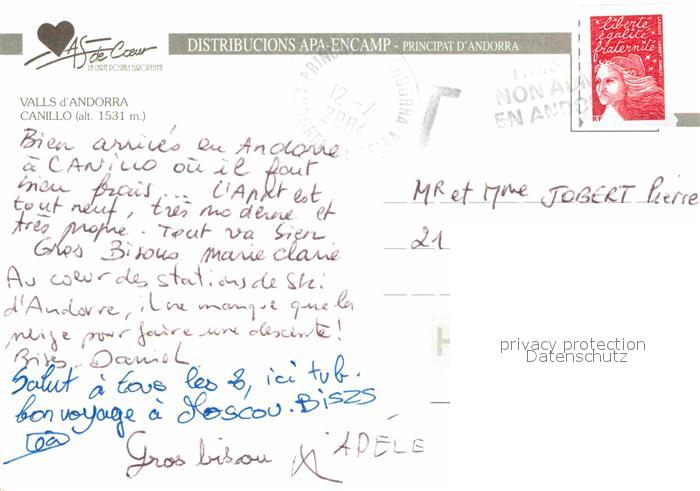 As de Cœur
LA CARTE POSTALE EUROPÉENNE
DISTRIBUCIONS APA-ENCAMP - PRINCIPAT D'ANDORRA
liberté
égalité
fraternité
RF
LA POSTE
12-1
2004
NON ADM
EN ANDO
T
VALLS d'ANDORRA
CANILLO (alt. 1531 m.)
Bien arrivés en Andorre
à CANILLO où il fait
bien frais... L'Apart est
tout neuf, très moderne et
très propre. Tout va bien
Gros Bisous Marie Claire
Au coeur des stations de Ski
d'Andorre, il ne manque que la
neige pour faire une descente!
Bises Daniel
Salut à tous les 8, ici tvb.
bon voyage à Moscou. BISZS
Gros bisou ADÈLE
Mr et Mme JOBERT Pierre
21
privacy protection
Datenschutz